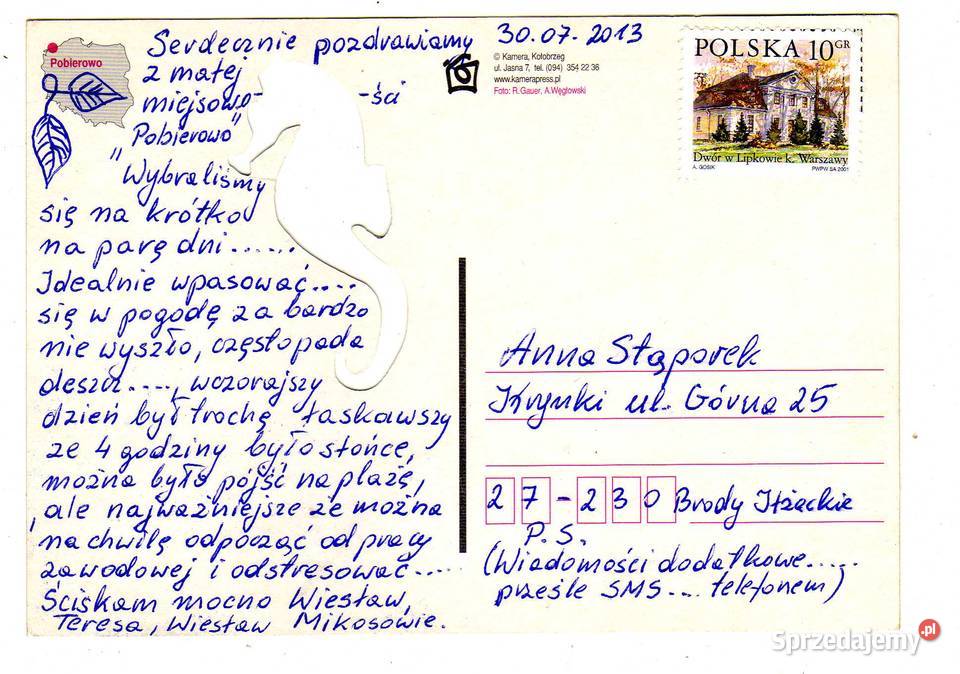 Pobierowo
Serdecznie pozdrawiamy
z małej
miejsowo- -ści
"Pobierowo"
Wybraliśmy
się na krótko
na parę dni......
Idealnie wpasować....
się w pogodę za bardzo
nie wyszło, często pada
deszcz...., wczorajszy
dzień był trochę łaskawszy
ze 4 godziny było słońce,
można było pójść na plażę,
ale najważniejsze że można
na chwilę odpocząć od pracy
zawodowej i odstresować.....
Ściskam mocno Wiesław,
Teresa, Wiesław Mikosowie.
30.07.2013
© Kamera, Kołobrzeg
ul. Jasna 7, tel. (094) 354 22 36
www.kamerapress.pl
Foto: R.Gauer, A.Węgłowski
POLSKA 10GR
Dwór w Lipkowie k. Warszawy
A. GOSIK PWPW SA 2001
Anna Stąporek
Krynki ul. Górna 25
27-230 Brody Iłżeckie
P.S.
(Wiadomości dodatkowe.....
prześle SMS... telefonem)
Sprzedajemy.pl